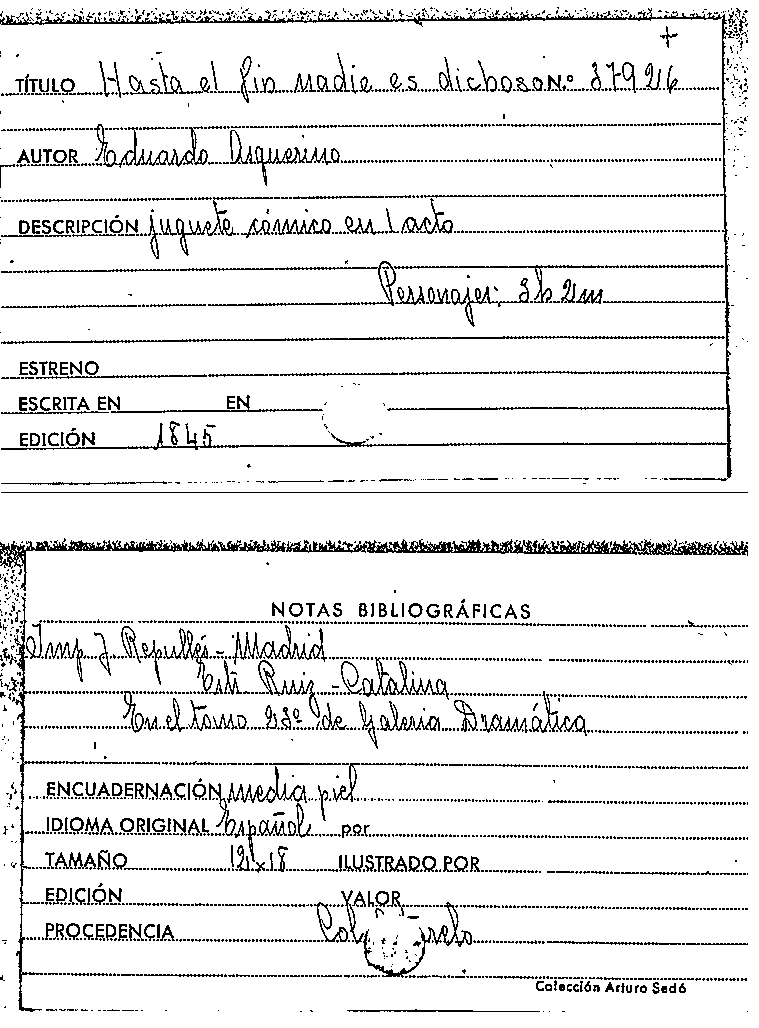 +
TÍTULO Hasta el fin nadie es dichoso N.º 37926
AUTOR Eduardo Asquerino
DESCRIPCIÓN juguete cómico en 1 acto
Personajes: 3h 2m
ESTRENO
ESCRITA EN EN
EDICIÓN 1845
NOTAS BIBLIOGRÁFICAS
Imp J Repullés - Madrid
Ruiz - Catalina
En el tomo de Galeria Dramática
ENCUADERNACIÓN media piel
IDIOMA ORIGINAL Español por
TAMAÑO 12x18 ILUSTRADO POR
EDICIÓN VALOR
PROCEDENCIA
Colección Arturo Sedó